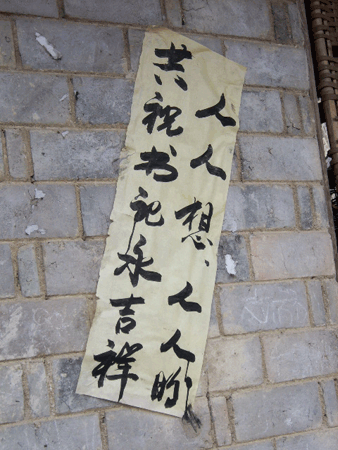 人人想、人人盼
共祝书记永吉祥